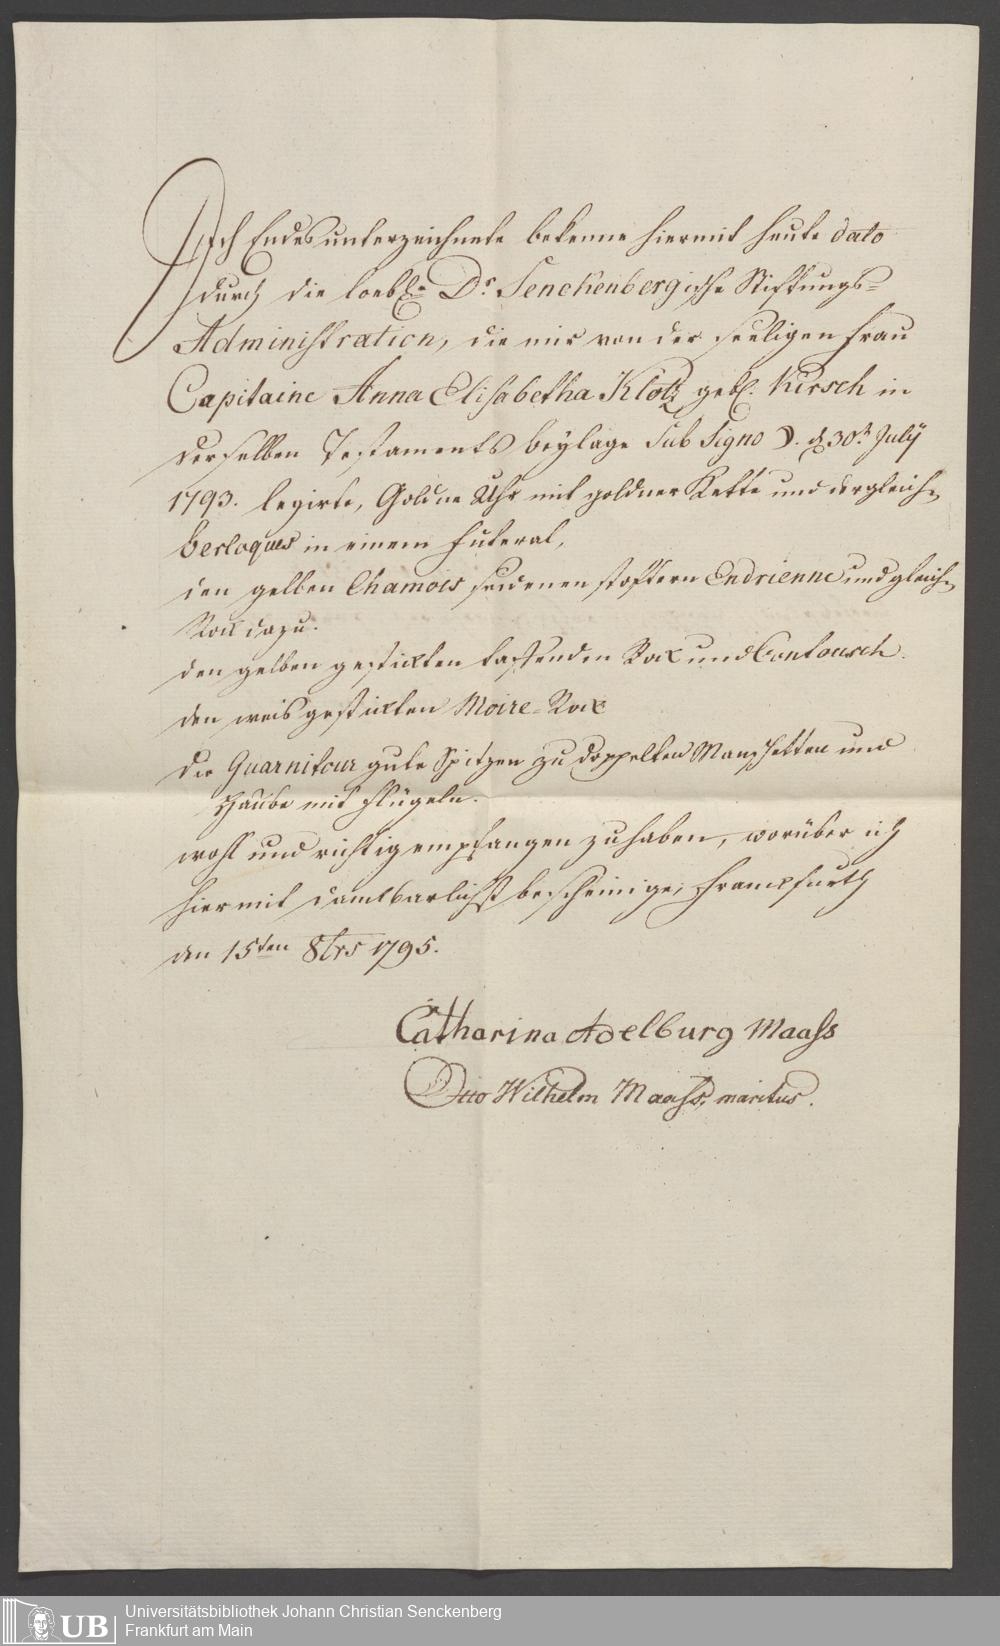 Ich Endesunterzeichnete bekenne hiermit heute dato
durch die loebl. Dr. Senckenbergische Stiftungs=
Administration, die mir von der seeligen Frau
Capitaine Anna Elisabetha Klotz geb. Kirsch in
derselben Testaments beylage sub Signo D. d. 30t July
1793. legirte, Goldne Uhr mit goldner Kette und dergleich
berloques in einem Futeral,
den gelben Chamois seidenen stoffern Endrienne und gleich
Rock dazu.
den gelben gestickten taffenden Rock und Contousch.
den weis gestickten Moire=Rock
die Guarnitour gute Spitzen zu doppelten Manschetten und
Haube mit Flügeln.
wohl und richtig empfangen zu haben, worüber ich
hiermit danckbarlichst bescheinige, Franckfurth
den 15ten 8brs 1795.
Catharina Adelburg Maass
Otto Wilhelm Maass, maritus.
UB
Universitätsbibliothek Johann Christian Senckenberg
Frankfurt am Main